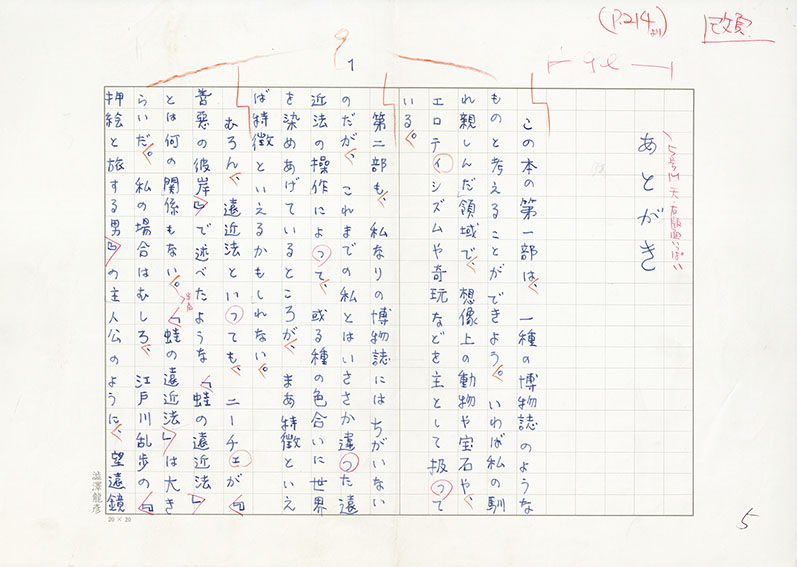 (P.214より)
改頁
1
あとがき
5号14 天・右版面いっぱい
この本の第一部は、一種の博物誌のような
ものと考えることができよう。いわば私の馴
れ親しんだ領域で、想像上の動物や宝石や、
エロティシズムや奇玩などを主として扱って
いる。
第二部も、私なりの博物誌にはちがいない
のだが、これまでの私とはいささか違った遠
近法の操作によって、或る種の色合いに世界
を染めあげているところが、まあ特徴といえ
ば特徴といえるかもしれない。
むろん、遠近法といっても、ニーチェが『
善悪の彼岸』で述べたような「蛙の遠近法」
とは何の関係もない。「蛙の遠近法」は大き
らいだ。私の場合はむしろ、江戸川乱歩の『
押絵と旅する男』の主人公のように、望遠鏡
澁澤龍彦
20×20
5